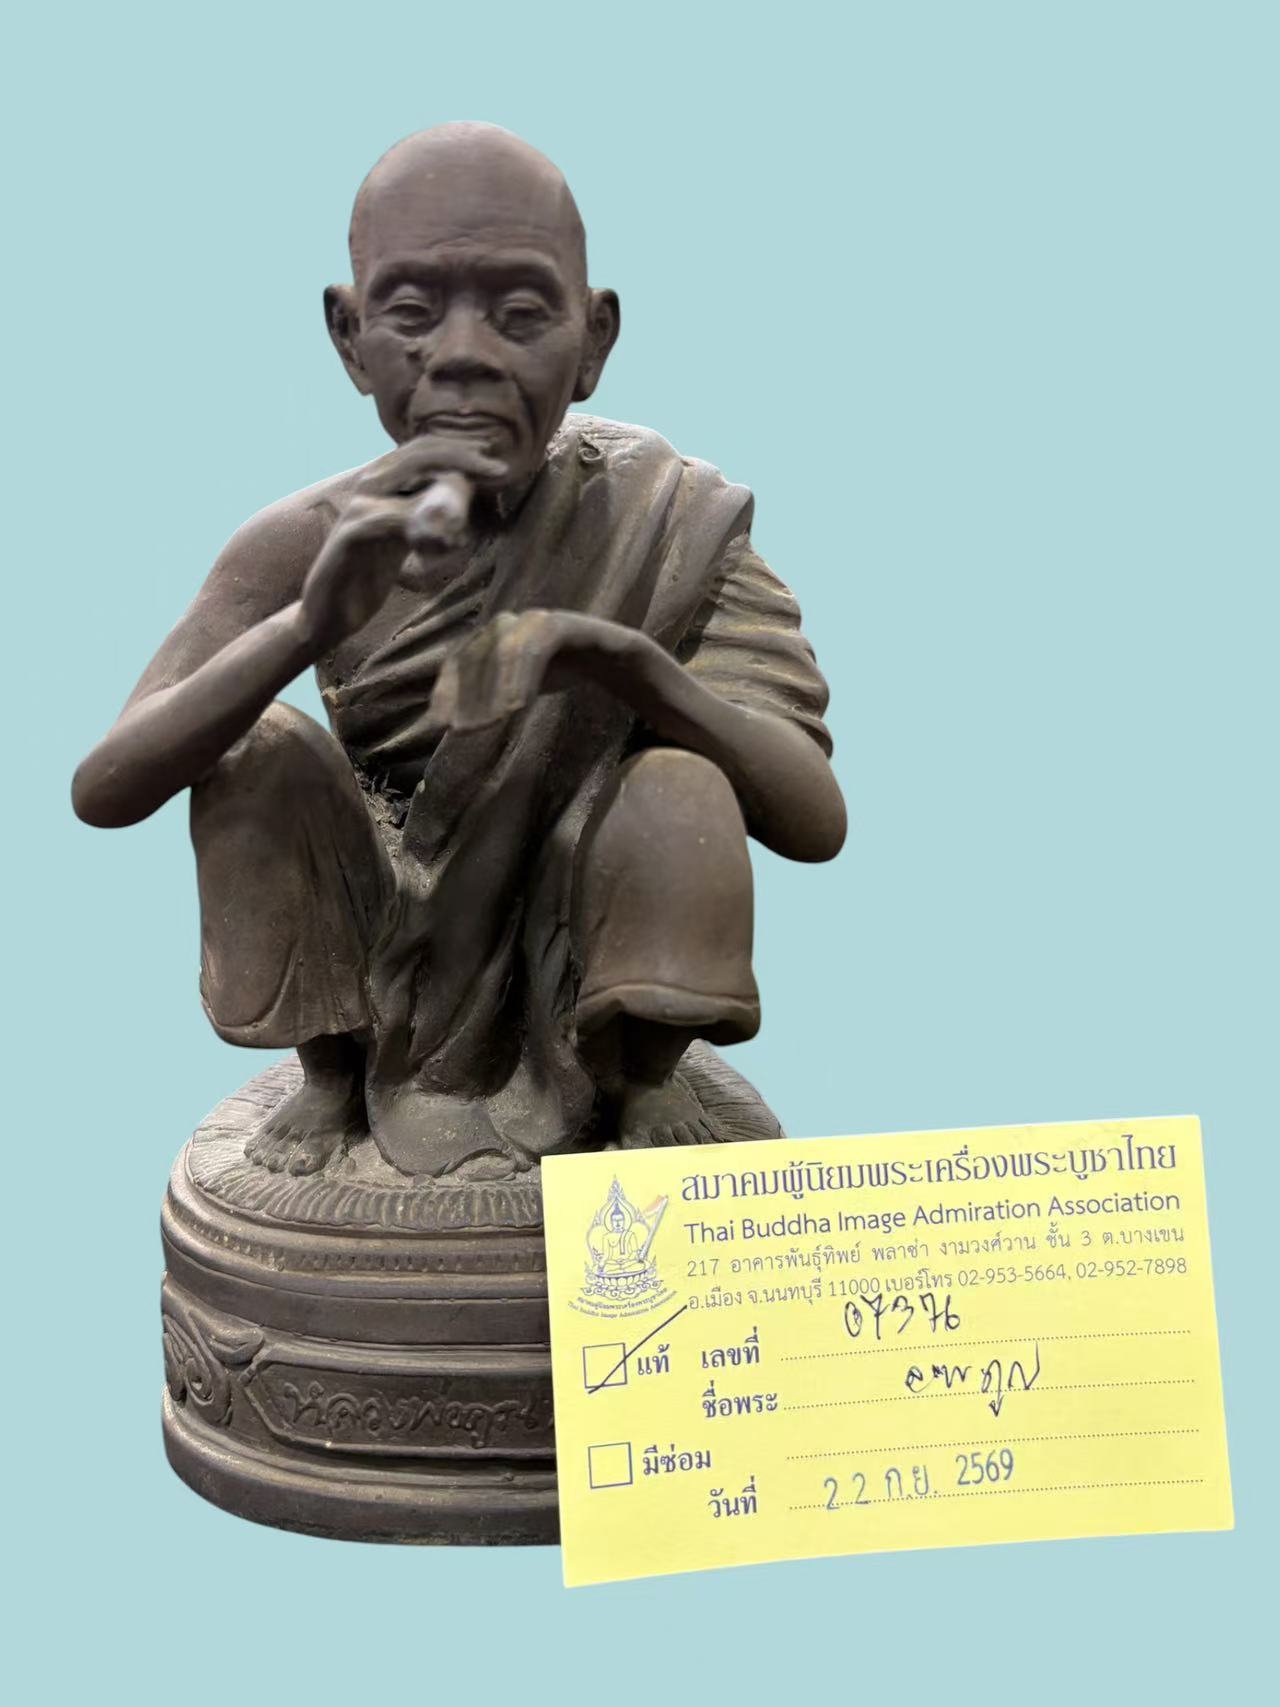 หลวงพ่อคูณ
สมาคมผู้นิยมพระเครื่องพระบูชาไทย
Thai Buddha Image Admiration Association
217 อาคารพันธุ์ทิพย์ พลาซ่า งามวงศ์วาน ชั้น 3 ต.บางเขน
อ.เมือง จ.นนทบุรี 11000 เบอร์โทร 02-953-5664, 02-952-7898
สมาคมผู้นิยมพระเครื่องพระบูชาไทย
Thai Buddha Image Admiration Association
แท้ เลขที่ 07376
ชื่อพระ
มีซ่อม
วันที่ 22 ก.ย. 2569